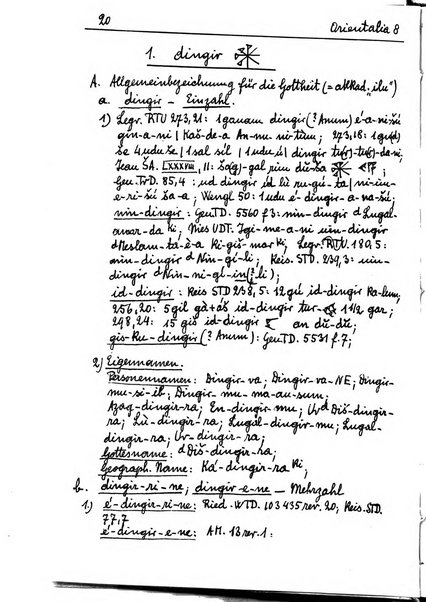 20 Orientalia 8
1. dingir
A. Allgemeinbezeichnung für die Gottheit (= akkad. „ilu")
a. dingir — Einzahl.
1) Legr. RTU 273,21: 1 ganam dingir (? Anum) é-a-ni-šú
gin-a-ni | Kaš-de-a An-nu-ni-tum; 273,18: 1
še 4 udu še | 1 sal sil | 1 udu ú | dingir
Jean ŠA. LXXXVIII, II: šà(g)-gal
Gen. TrD. 85,4: ud dingir id lù ru-gú-ta
e-ri-šú ša-a; Wengl 50: 1 udu é-dingir-a-na-šú;
nin-dingir: Gen. TD. 5560 f 3: nin-dingir d Lugal-
mar-da ki; Nies UDT. Igi-me-a-ni nin-dingir
d Meslam-ta-è-a Ki-giš-mar ki; Legr. RTU. 180,5:
nin-dingir d Nin-gí-li; Reis. STD. 239,3: nin-
dingir d Nin-ni-gi-in(?-li);
id-dingir: Reis STD 238,5: 12 gú id-dingir Ka-lum;
256,20: 5 gil gà+áš id-dingir tur- 1 1/2 gar;
298,24: 15 giš id-dingir an
giš-Ku-dingir (? Anum): Gen TD. 5531 f.7;
2) Eigennamen.
Personennamen: Dingir-va; Dingir-va-NE; Dingir-
mu-si-ib; Dingir-mu-ma-an-sum;
Azag-dingir-ra; En-dingir-mu; Ur d Diš-dingir-
ra; Lù-dingir-ra; Lugál-dingir-mu; Lugal-
dingir-ra; Ur-dingir-ra;
Gottesname: d Diš-dingir-ra;
Geograph. Name: Ká-dingir-ra ki;
b. dingir-ri-ne; dingir-e-ne — Mehrzahl
1.) é-dingir-ri-ne: Ried. WTD. 103 435 rev. 20; Reis. STD.
77,7
é-dingir-e-ne: AM. 13 rev. 1: